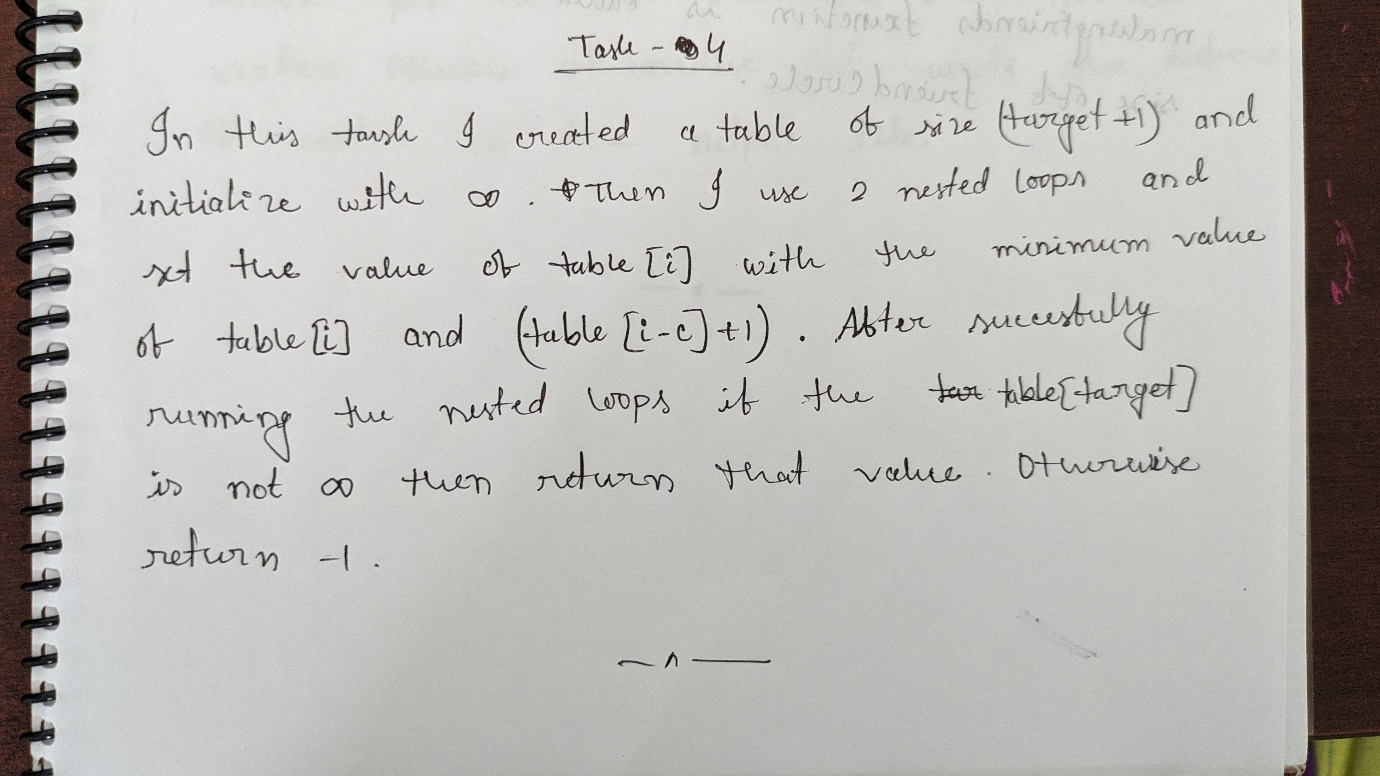 Task - 4
In this task I created a table of size (target +1) and
initialize with ∞ . Then I use 2 nested loops and
set the value of table [i] with the minimum value
of table [i] and (table [i-c] +1) . After succesfully
running the nested loops if the table[target]
is not ∞ then return that value . Otherwise
return -1 .